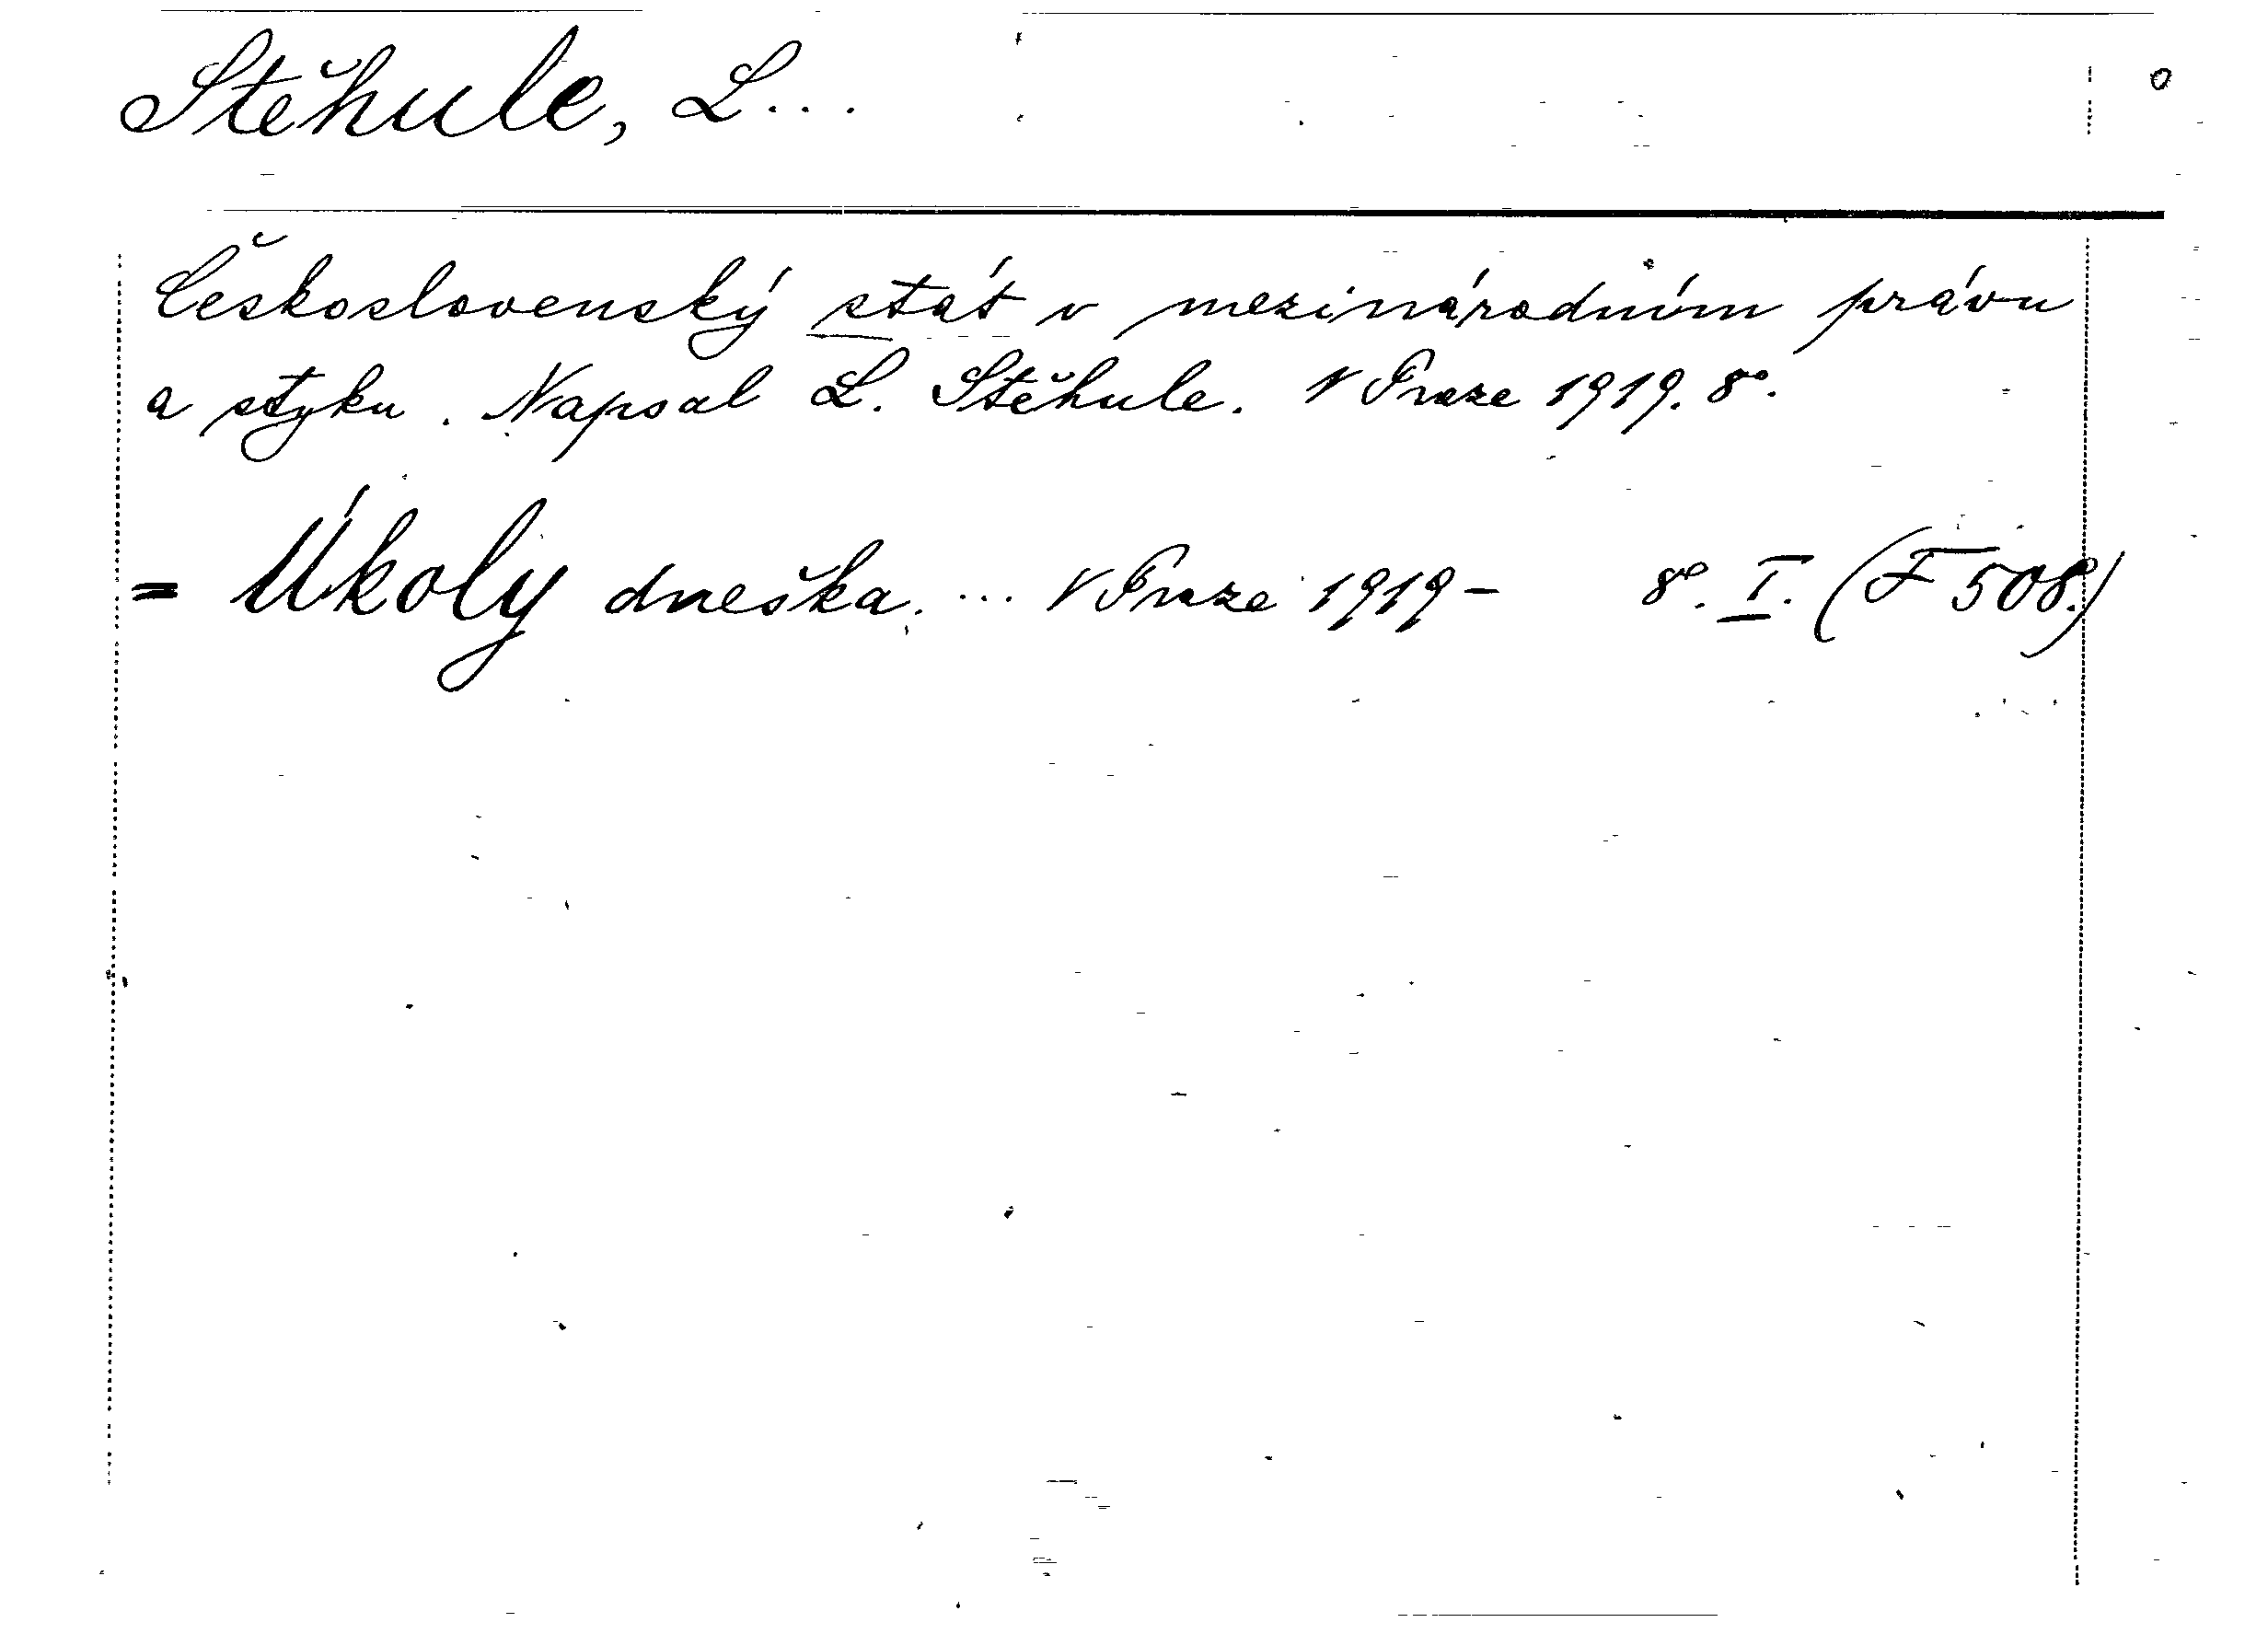 Stěhule, L...
Československý stát v mezinárodním právu
a styku. Napsal L. Stěhule. V Praze 1919. 8°.
= Úkoly dneška. ... V Praze 1919- 8°. I. (F 508.)